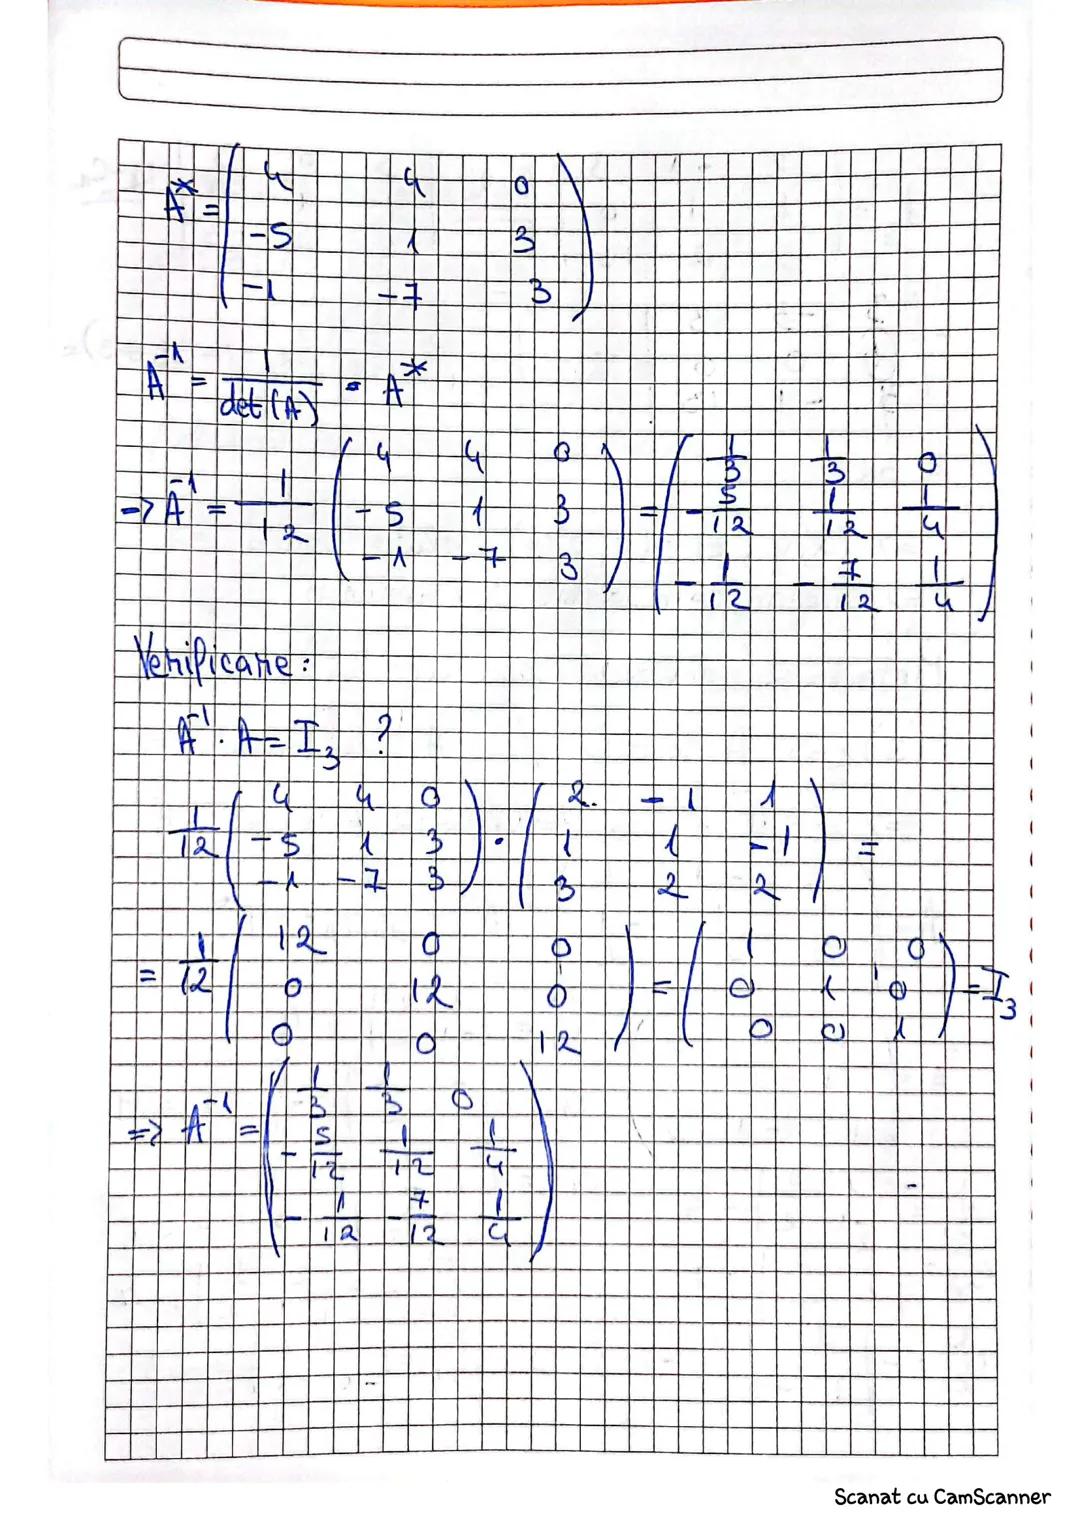 A* = ( 4 4 0
-5 1 3
-1 -7 3 )
A⁻¹ = 1/det(A) · A*
-> A⁻¹ = 1/12 ( 4 4 0 ) = ( 1/3 1/3 0 )
( -5 1 3 ) ( -5/12 1/12 1/4 )
( -1 -7 3 ) ( -1/12 -7/12 1/4 )
Verificare:
A⁻¹ · A = I₃ ?
1/12 ( 4 4 0 ) · ( 2 -1 1 ) =
( -5 1 3 ) ( 1 1 -1 )
( -1 -7 3 ) ( 3 2 2 )
= 1/12 ( 12 0 0 ) = ( 1 0 0 ) = I₃
( 0 12 0 ) ( 0 1 0 )
( 0 0 12 ) ( 0 0 1 )
=> A⁻¹ = ( 1/3 1/3 0
-5/12 1/12 1/4
-1/12 -7/12 1/4 )
Scanat cu CamScanner